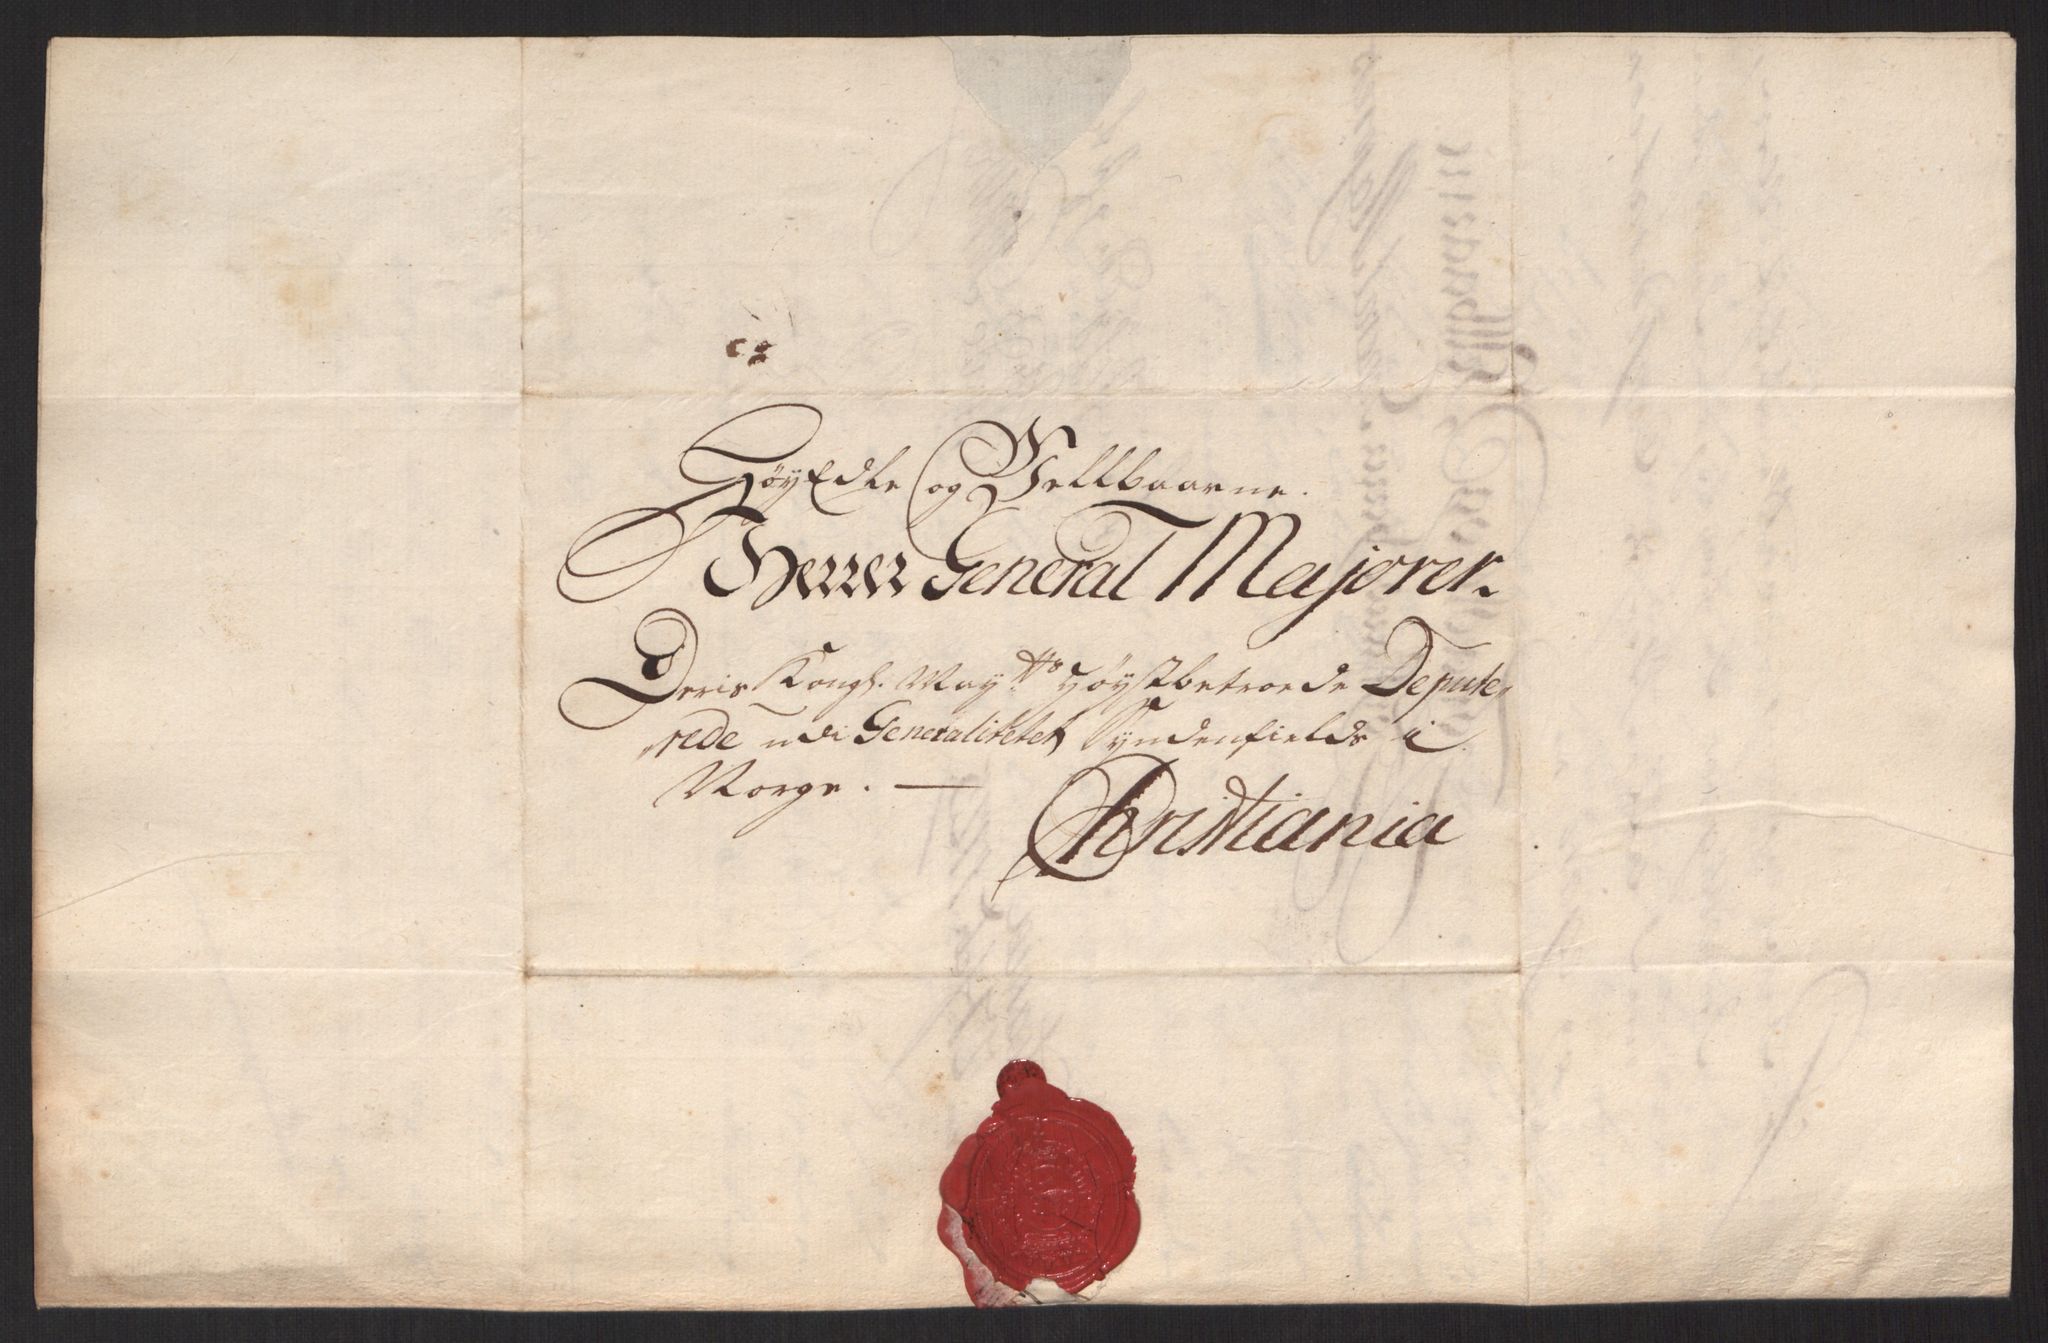 HöyEdle og Vellbaarne.
Herrer General Majorer.
Deris Kongl. May.tts Höystbetroede Depute,
rede udi Generalitetet Syndenfields i
Norge. —
Christiania